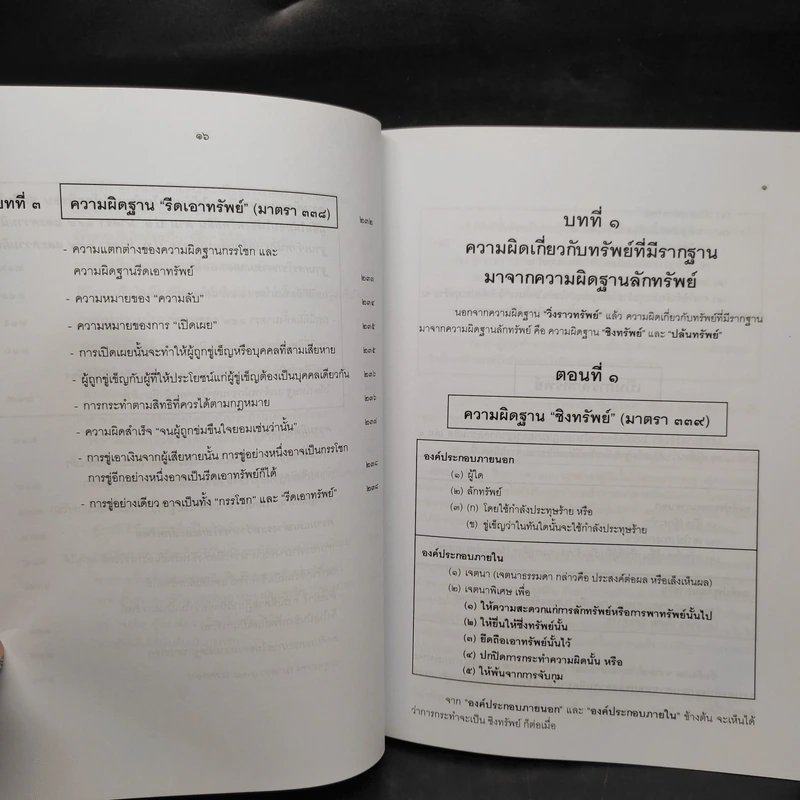 ๑๖
บทที่ ๓ ความผิดฐาน "รีดเอาทรัพย์" (มาตรา ๓๓๘) ๒๓๒
- ความแตกต่างของความผิดฐานกรรโชก และ
ความผิดฐานรีดเอาทรัพย์ ๒๓๓
- ความหมายของ "ความลับ" ๒๓๔
- ความหมายของการ "เปิดเผย" ๒๓๕
- การเปิดเผยนั้นจะทำให้ผู้ถูกขู่เข็ญหรือบุคคลที่สามเสียหาย ๒๓๕
- ผู้ถูกขู่เข็ญกับผู้ที่ให้ประโยชน์แก่ผู้ขู่เข็ญต้องเป็นบุคคลเดียวกัน ๒๓๖
- การกระทำตามสิทธิที่ควรได้ตามกฎหมาย ๒๓๖
- ความผิดสำเร็จ "จนผู้ถูกข่มขืนใจยอมเช่นว่านั้น"
- การขู่เอาเงินจากผู้เสียหายนั้น การขู่อย่างหนึ่งอาจเป็นกรรโชก
การขู่อีกอย่างหนึ่งอาจเป็นรีดเอาทรัพย์ก็ได้ ๒๓๘
- การขู่อย่างเดียว อาจเป็นทั้ง "กรรโชก" และ "รีดเอาทรัพย์" ๒๓๘
๑
บทที่ ๑
ความผิดเกี่ยวกับทรัพย์ที่มีรากฐาน
มาจากความผิดฐานลักทรัพย์
นอกจากความผิดฐาน "วิ่งราวทรัพย์" แล้ว ความผิดเกี่ยวกับทรัพย์ที่มีรากฐาน
มาจากความผิดฐานลักทรัพย์ คือ ความผิดฐาน "ชิงทรัพย์" และ "ปล้นทรัพย์"
ตอนที่ ๑
ความผิดฐาน "ชิงทรัพย์" (มาตรา ๓๓๙)
องค์ประกอบภายนอก
(๑) ผู้ใด
(๒) ลักทรัพย์
(๓) (ก) โดยใช้กำลังประทุษร้าย หรือ
(ข) ขู่เข็ญว่าในทันใดนั้นจะใช้กำลังประทุษร้าย
องค์ประกอบภายใน
(๑) เจตนา (เจตนาธรรมดา กล่าวคือ ประสงค์ต่อผล หรือเล็งเห็นผล)
(๒) เจตนาพิเศษ เพื่อ
(๑) ให้ความสะดวกแก่การลักทรัพย์หรือการพาทรัพย์นั้นไป
(๒) ให้ยื่นให้ซึ่งทรัพย์นั้น
(๓) ยึดถือเอาทรัพย์นั้นไว้
(๔) ปกปิดการกระทำความผิดนั้น หรือ
(๕) ให้พ้นจากการจับกุม
จาก "องค์ประกอบภายนอก" และ "องค์ประกอบภายใน" ข้างต้น จะเห็นได้
ว่าการกระทำจะเป็น ชิงทรัพย์ ก็ต่อเมื่อ